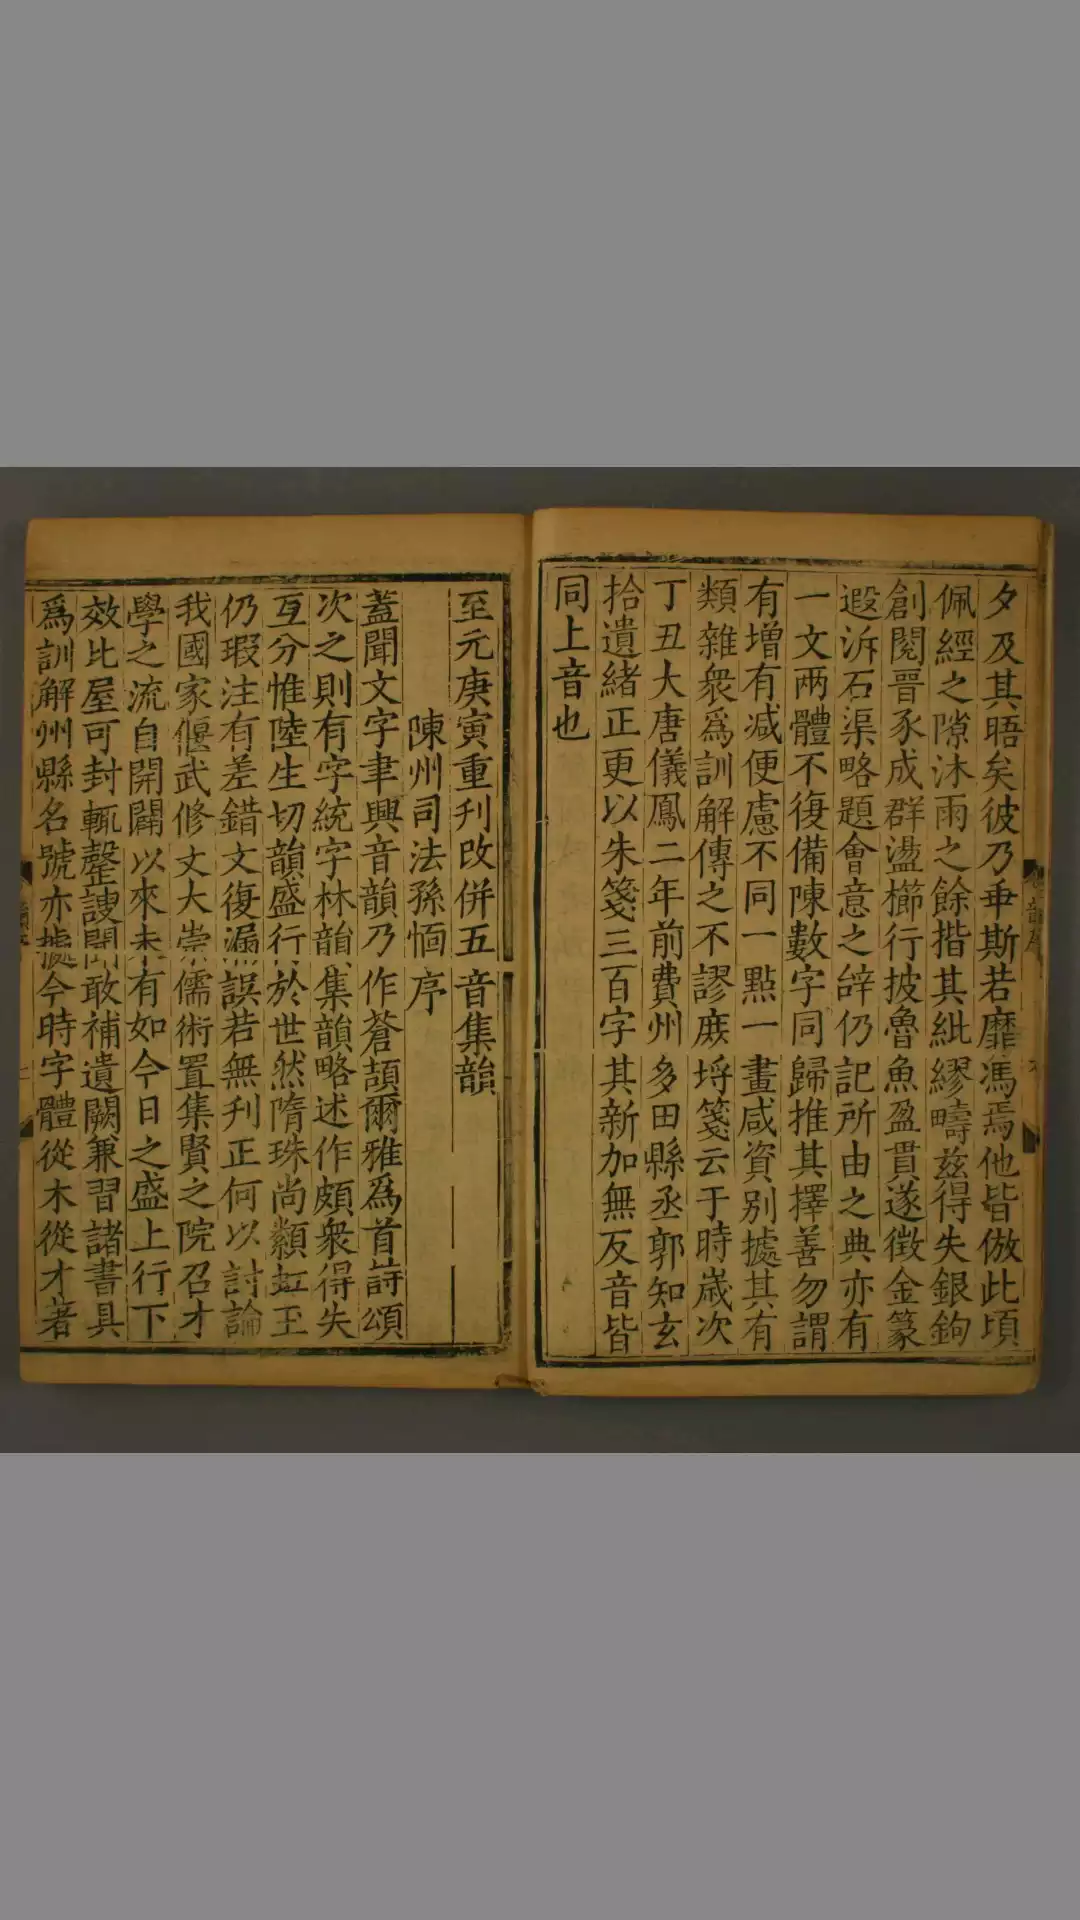 夕及其晤矣彼乃垂斯若靡馮焉他皆倣此頃
佩經之隙沐雨之餘揩其紕繆疇茲得失銀鉤
創閱晉豕成群盪櫛行披魯魚盈貫遂徴金篆
遐泝石渠略題會意之辝仍記所由之典亦有
一文兩體不復備陳數字同歸推其擇善勿謂
有增有減便慮不同一點一畫咸資別據其有
類雜衆爲訓解傳之不謬庻埒箋云于時歲次
丁丑大唐儀鳳二年前費州多田縣丞郭知玄
拾遺緒正更以朱箋三百字其新加無反音皆
同上音也
至元庚寅重刋改併五音集韻
陳州司法孫愐序
蓋聞文字聿興音韻乃作蒼頡爾雅爲首詩頌
次之則有字統字林韻集韻略述作頗衆得失
互分惟陸生切韻盛行於世然隋珠尚纇虹玉
仍瑕注有差錯文復漏誤若無刋正何以討論
我國家偃武修文大崇儒術置集賢之院召才
學之流自開闢以來未有如今日之盛上行下
效比屋可封輒罄謏聞敢補遺闕兼習諸書具
爲訓解州縣名號亦據今時字體從木從才著